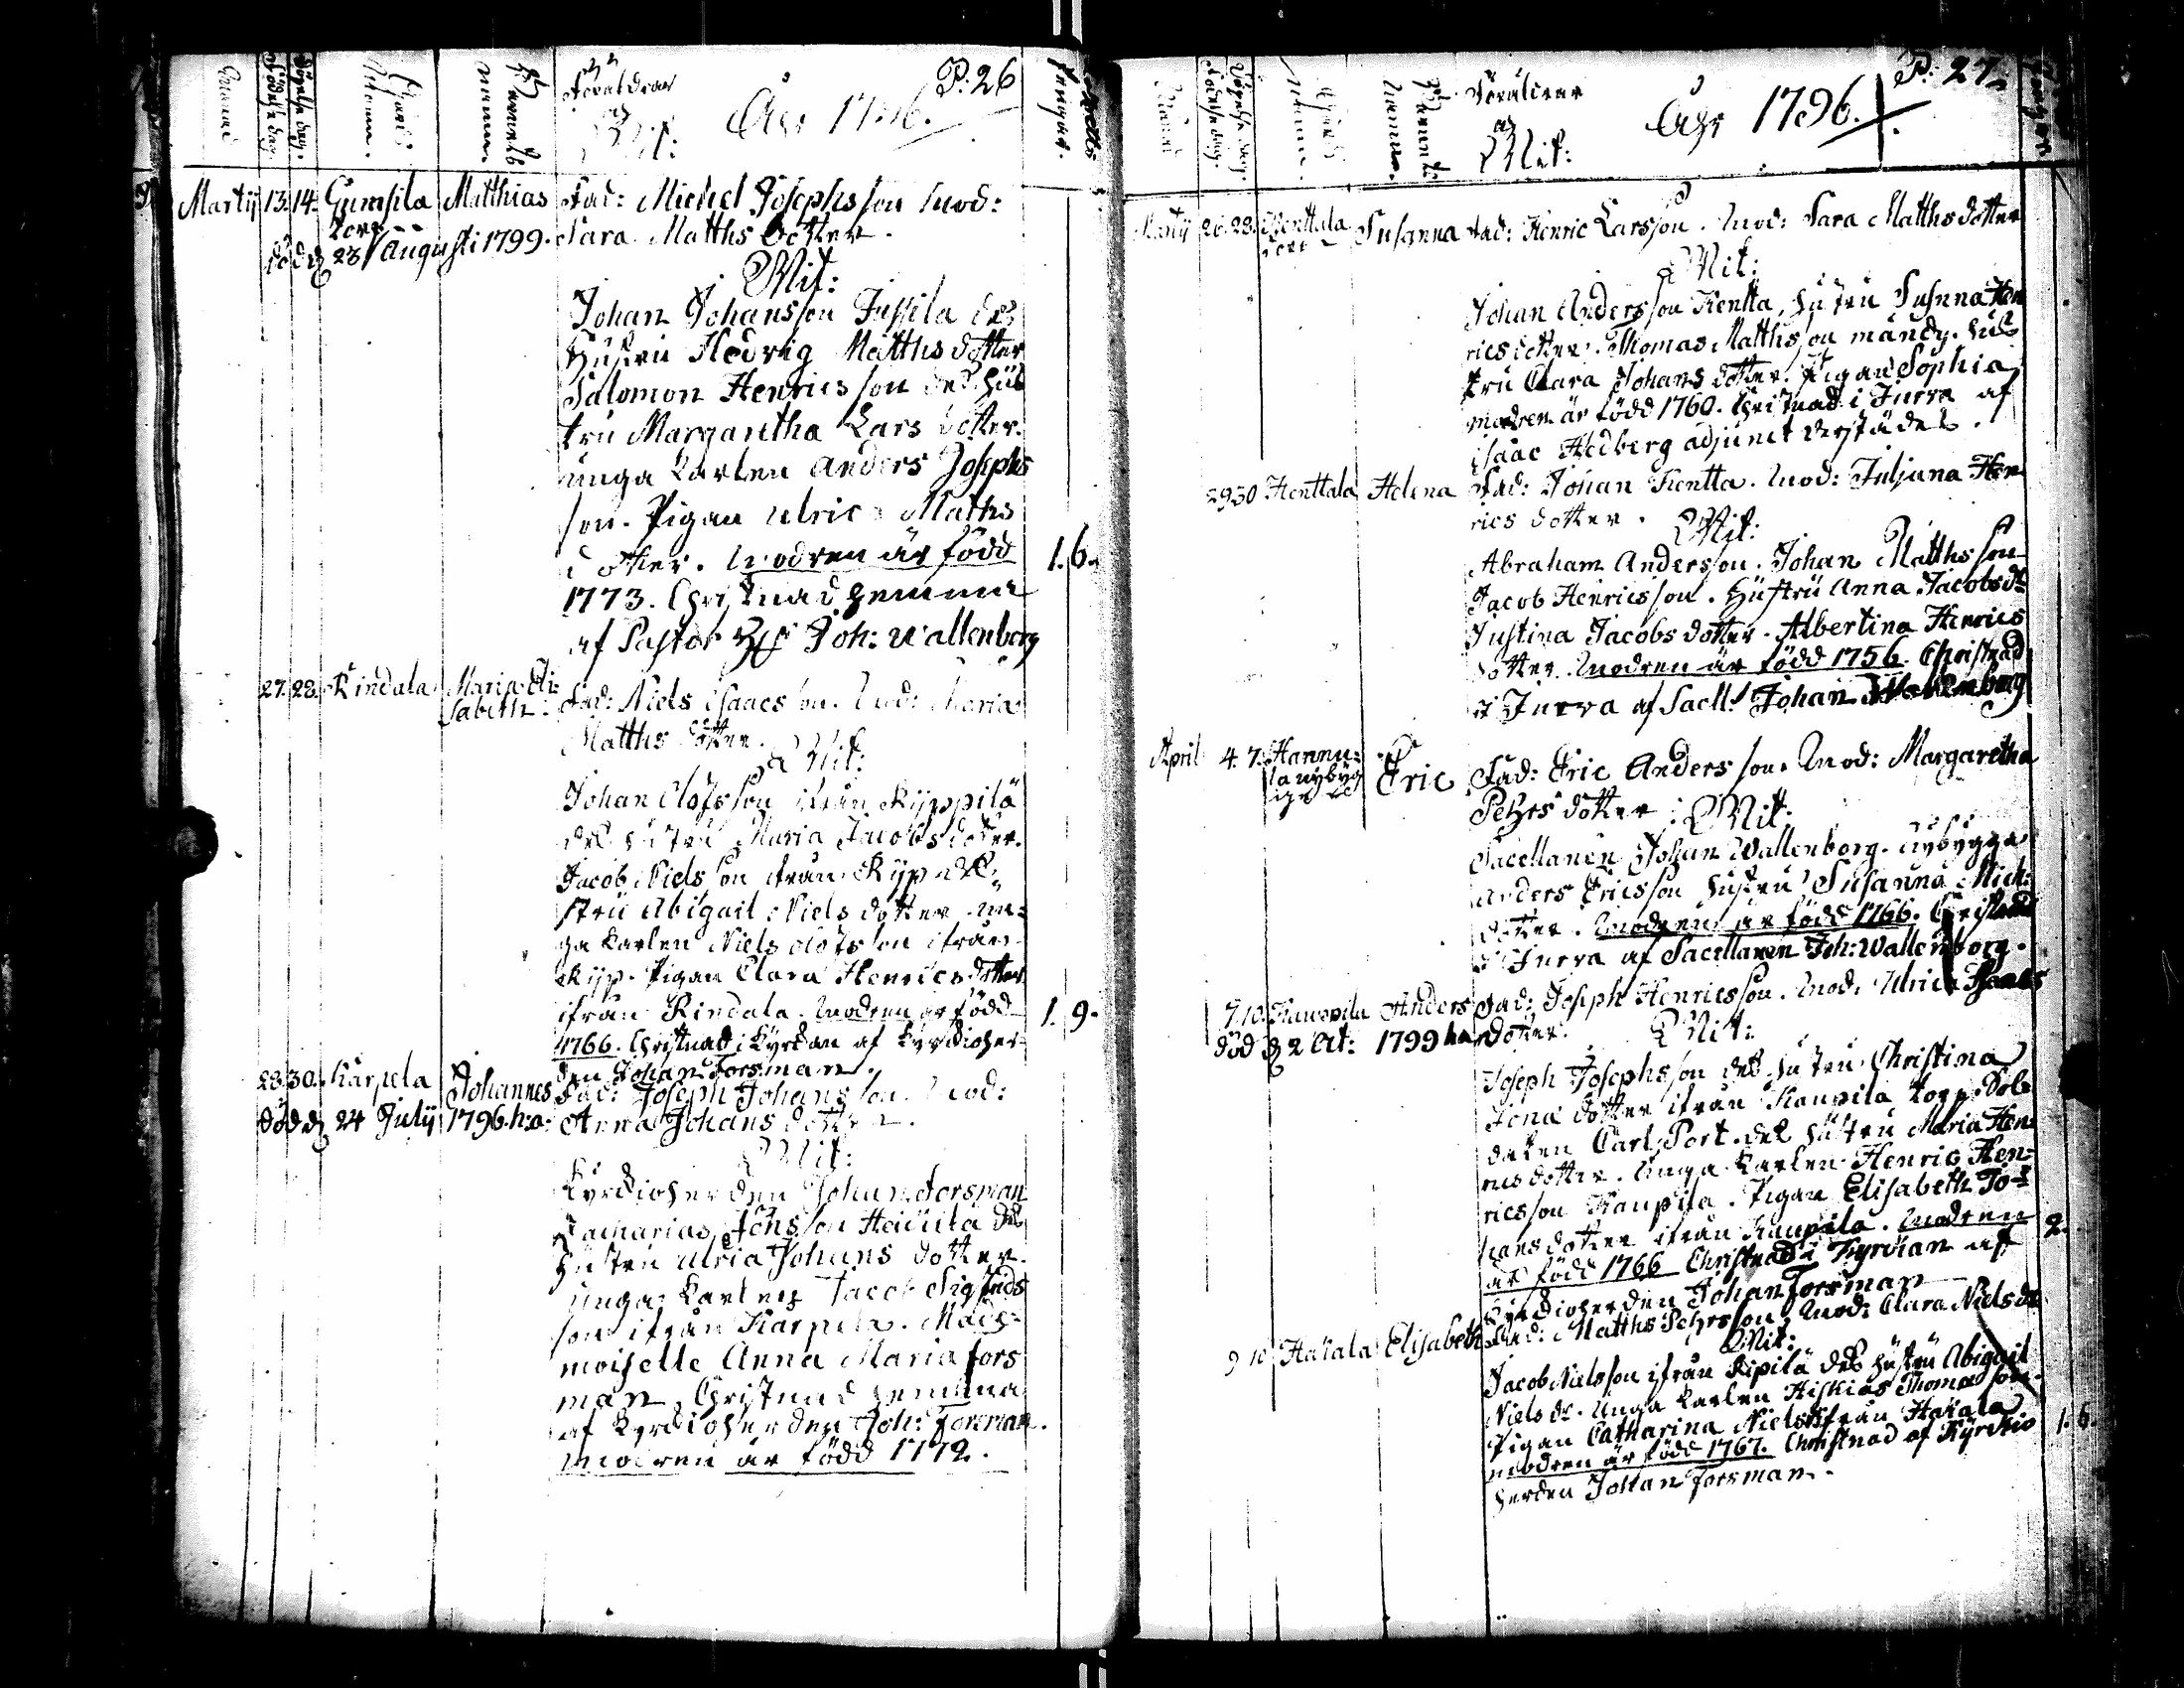 P. 26
Månad
Födelse dag.
Döpelse dag.
Gård
Barnets
namn.
Föräldrar
och
Wit:
Åhr 1796.
Martij 13. 14. Gumsila Matthias Fad: Michel Josephsson Mod:
Torp
Död d 28 Augusti 1799. Sara Matths dotter.
Wit:
Johan Johansson Jussila des
Hustru Hedvig Matthsdotter
Salomon Henricsson des Hus
tru Margaretha Lars dotter.
unga Karlen Anders Josephs
son. Pigan Ulric Matths
dotter. Modren är född
1. 6.
1773. Christnad hemma
af Pastor Joh: Wallenberg
27. 28. Rindala Maria Eli
sabeth. Fad: Niels Isaacsson. Mod: Maria
Matths dotter.
Wit:
Johan Olofsson ifrån Kyppilä
des hustru Maria Jacobs dotter.
Jacob Nielsson ifrån Kyp
stru Abigail Niels dotter. un=
ga Karlen Niels Olofsson ifrån
Kyp. Pigan Clara Henrics dotter
ifrån Rindala. Modren är född
1. 9.
1766. Christnad i Kyrckan af Kyrckioher=
den Johan Forsman.
28. 30. Karpela Johannes Fad: Joseph Johansson. Mod:
Död d 24 Julij 1796. h: a. Anna Johans dotter.
Wit:
Kyrckioherden Johan Forsman
Zacharias Jönsson Heickila des
Hustru Ulrica Johans dotter.
Unga Karlen Jacob Sigfrids
son ifrån Karpela. Mad=
moiselle Anna Maria Fors
man. Christnad hemma
af Kyrckioherden Joh: Forsman.
Modren är född 1772.
P. 27.
Månad
Födelse dag.
Döpelse dag.
Gårds
namn.
Barnets
namn.
Föräldrar
och
Wit:
Åhr 1796.
Martij 26. 28. Kenttala Susanna Fad: Henric Larsson. Mod: Sara Matthsdotter
Torp
Wit:
Johan Andersson Kentta, hustru Susanna Hen
rics dotter. Thomas Matthsson hus
tru Clara Johans dotter. Pigan Sophia
modren är född 1760. Christnad i Jurva af
Isaac Hedberg adjunct derstädes.
29. 30 Kenttala Helena Fad: Johan Kentta. Mod: Juliana Hen
rics dotter. Wit:
Abraham Andersson. Johan Matthsson
Jacob Henricsson. Hustru Anna Jacobsdr
Justina Jacobs dotter. Albertina Henrics
dotter. Modren är född 1756. Christnad
i Jurva af Sacell: Johan Wallenberg
April 4. 7. Hannu=
la nybyg
Eric Fad: Eric Andersson. Mod: Margaretha
Pehrs dotter. Wit:
Sacellanen Johan Wallenborg. nybygga
Anders Ericsson hustru Susanna Mich:
dotter. Modren är född 1766. Christnad
i Jurva af Sacellanen Joh: Wallenborg.
9. 10. Kauppila Anders Fad: Joseph Henricsson. Mod: Ulrica Isaacs
död d 2 Oct: 1799 dotter. Wit:
Joseph Josephsson des hustru Christina
Jona dotter ifrån Kaupila torp. Sol
daten Carl Port. des hustru Maria Hen
rics dotter. Unga Karlen Henric Hen=
ricsson Kaupila. Pigan Elisabeth Jo=
hans dotter ifrån Kaupila. Modren
2.
är född 1766 Christnad i Kyrckan af
Kyrckioherden Johan Forsman
9 10 Hakala Elisabeth Fad: Matths Pehrsson. Mod: Clara Nielsdr
Wit:
Jacob Nielsson ifrån Kipilä des hustru Abigail
Niels dr. Unga Karlen Hiskias Thomasson
Pigan Catharina Nielsdr ifrån Hakala
modren är född 1767. Christnad af Kyrckio
1. 6.
herden Johan Forsman.